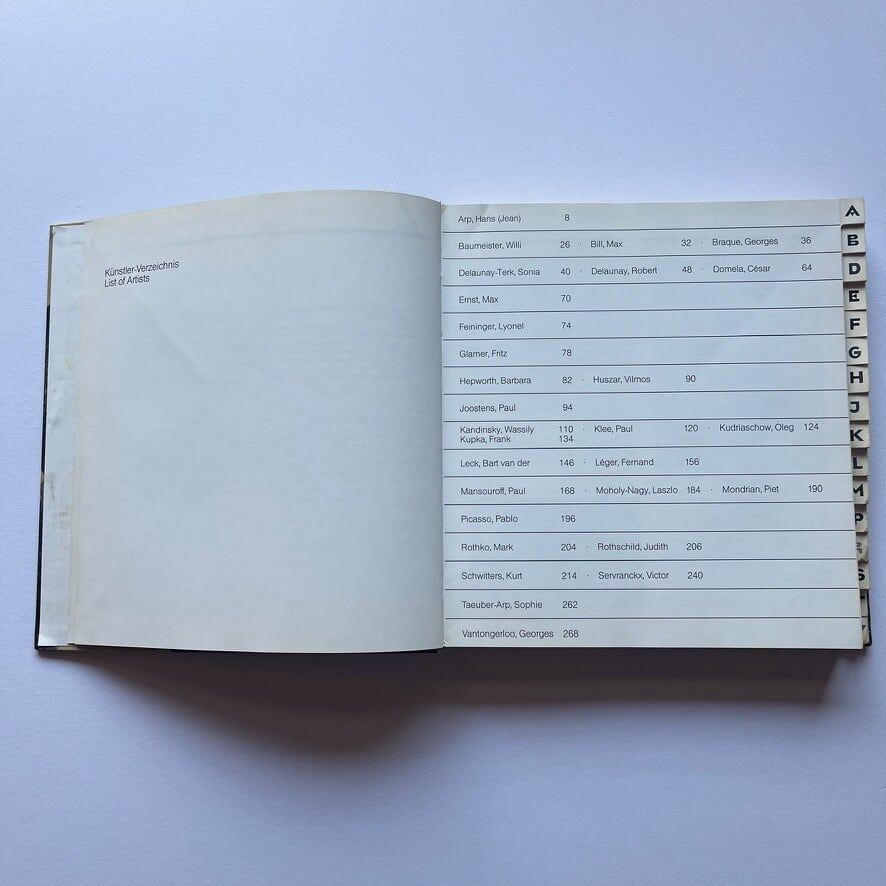 Künstler-Verzeichnis
List of Artists
Arp, Hans (Jean) 8
Baumeister, Willi 26 · Bill, Max 32 · Braque, Georges 36
Delaunay-Terk, Sonia 40 · Delaunay, Robert 48 · Domela, César 64
Ernst, Max 70
Feininger, Lyonel 74
Glarner, Fritz 78
Hepworth, Barbara 82 · Huszar, Vilmos 90
Joostens, Paul 94
Kandinsky, Wassily 110 · Klee, Paul 120 · Kudriaschow, Oleg 124
Kupka, Frank 134
Leck, Bart van der 146 · Léger, Fernand 156
Mansouroff, Paul 168 · Moholy-Nagy, Laszlo 184 · Mondrian, Piet 190
Picasso, Pablo 196
Rothko, Mark 204 · Rothschild, Judith 206
Schwitters, Kurt 214 · Servranckx, Victor 240
Taeuber-Arp, Sophie 262
Vantongerloo, Georges 268
A
B
D
E
F
G
H
J
K
L
M
P
S